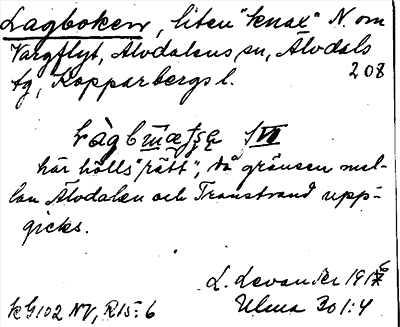 Lagboken, liten "knax" N. om
Vargflyt, Älvdalens sn, Älvdals
tg, Kopparbergs l. 208
här hölls "rätt", då gränsen mel-
lan Älvdalen och Transtrand upp-
gicks.
L. Levander 1916
KG102 NV, R15:6 Ulma 30 1:4